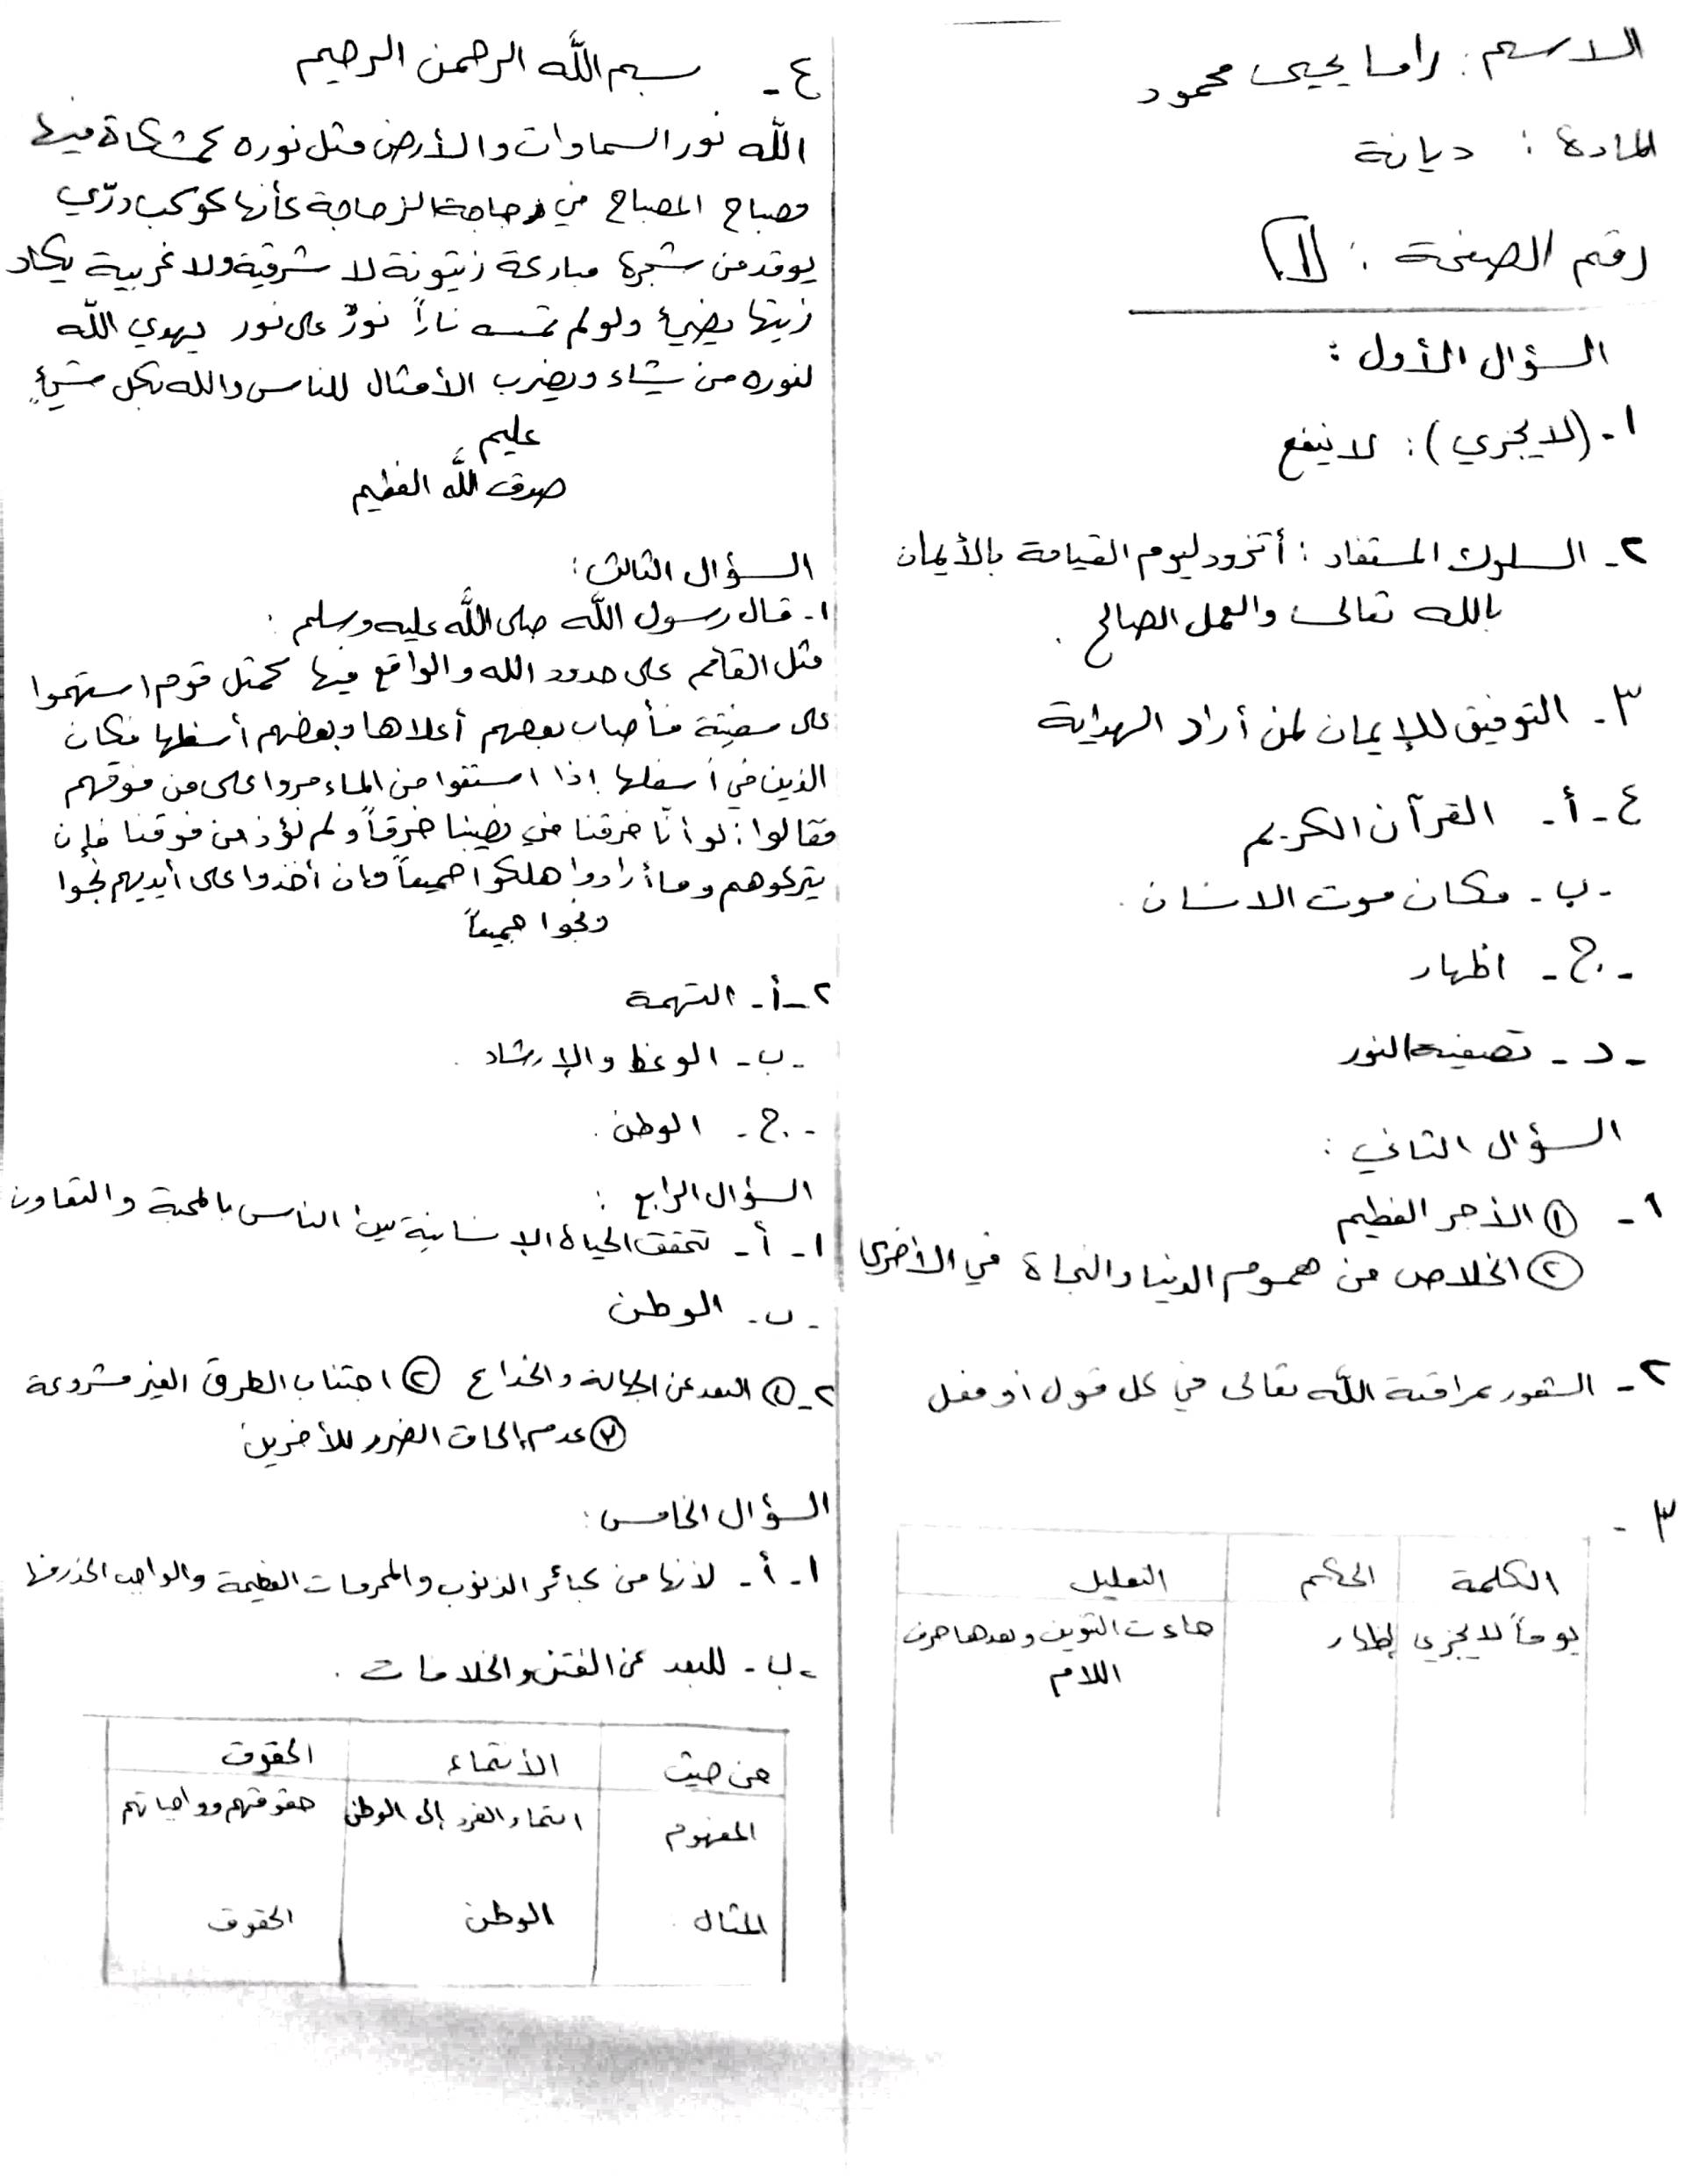 الاسم : راما يحيى محمود
المادة : ديانة
رقم الصفحة : ١
السؤال الأول :
١- (لا يجزي) : لا ينفع
٢- السلوك المستفاد : أتزود ليوم القيامة بالأيمان
بالله تعالى والعمل الصالح .
٣- التوفيق للإيمان لمن أراد الهداية
٤- أ- القرآن الكريم
- ب- مكان موت الانسان .
- ج- اظهار
- د- تصفية النور
السؤال الثاني :
١- ① الأجر العظيم
② الخلاص من هموم الدنيا والنجاة في الأخرى
٢- الشعور بمراقبة الله تعالى في كل قول أو فعل
٣-
الكلمة الحكم التعليل
يوماً لا يجزي إظهار جاءت التنوين وبعدها حرف
اللام
٤- بسم الله الرحمن الرحيم
الله نور السماوات والأرض مثل نوره كمشكاة فيها
مصباح المصباح في زجاجة الزجاجة كأنها كوكب درّي
يوقد من شجرة مباركة زيتونة لا شرقية ولا غربية يكاد
زيتها يضيئ ولو لم تمسه ناراً نورٌ على نور يهدي الله
لنوره من يشاء ويضرب الأمثال للناس والله بكل شيئٍ
عليم
صدق الله العظيم
السؤال الثالث :
١- قال رسول الله صلى الله عليه وسلم :
مثل القائم على حدود الله والواقع فيها كمثل قوم استهموا
على سفينة فأصاب بعضهم أعلاها وبعضهم أسفلها فكان
الذين في أسفلها إذا استقوا من الماء مروا على من فوقهم
فقالوا : لو أنّا خرقنا في نصيبنا خرقاً ولم نؤذ من فوقنا فإن
يتركوهم وما أرادوا هلكوا جميعاً وان أخذوا على أيديهم نجوا
ونجوا جميعاً
٢- أ- التهمة
- ب- الوعظ والإرشاد .
- ج- الوطن .
السؤال الرابع :
١- أ- تحقق الحياة الإنسانية بين الناس بالمحبة والتعاون
- ب- الوطن
٢- ① البعد عن الجهالة والخداع ② اجتناب الطرق الغير مشروعة
③ عدم إلحاق الضرر للأخرين
السؤال الخامس :
١- أ- لأنها من كبائر الذنوب والمحرمات العظيمة والواجب الحذر منها
- ب- للبعد عن الفتن والخلافات .
من حيث الأنتماء الحقوق
المفهوم انتماء الفرد إلى الوطن حقوقهم وواجباتهم
المثال الوطن الحقوق